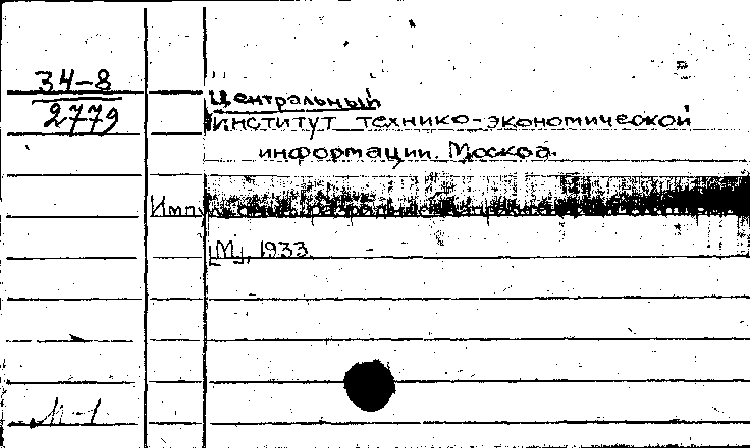 34-8
2779
Центральный
институт технико-экономической
информации. Москва.
[М.], 1933.
М-1